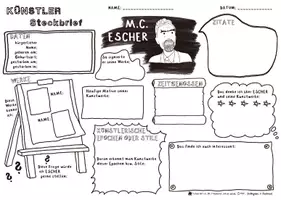 KÜNSTLER
Steckbrief
NAME:
DATUM:
M.C.
ESCHER
ZITATE
DATEN
bürgerlicher
Name:
geboren am:
Geburtsort:
gestorben am:
gestorben in:
So signierte
er seine Werke:
WERKE
ZEITGENOSSEN
Häufige Motive seiner
Kunstwerke:
Das denke ich über ESCHER
und seine Kunstwerke:
NAME:
NAME:
KÜNSTLERISCHE
EPOCHEN ODER STILE
Darum erkennt man Kunstwerke
dieser Epochen bzw. Stile:
Das finde ich auch interessant:
Diese Frage würde
ich ESCHER
gerne stellen: